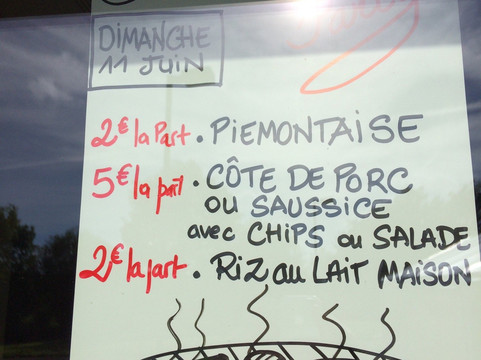 DIMANCHE
11 JUIN
2€ la Part. PIEMONTAISE
5€ la part. CÔTE DE PORC
OU SAUSSICE
avec CHIPS ou SALADE
2€ la part. RIZ au LAIT MAISON